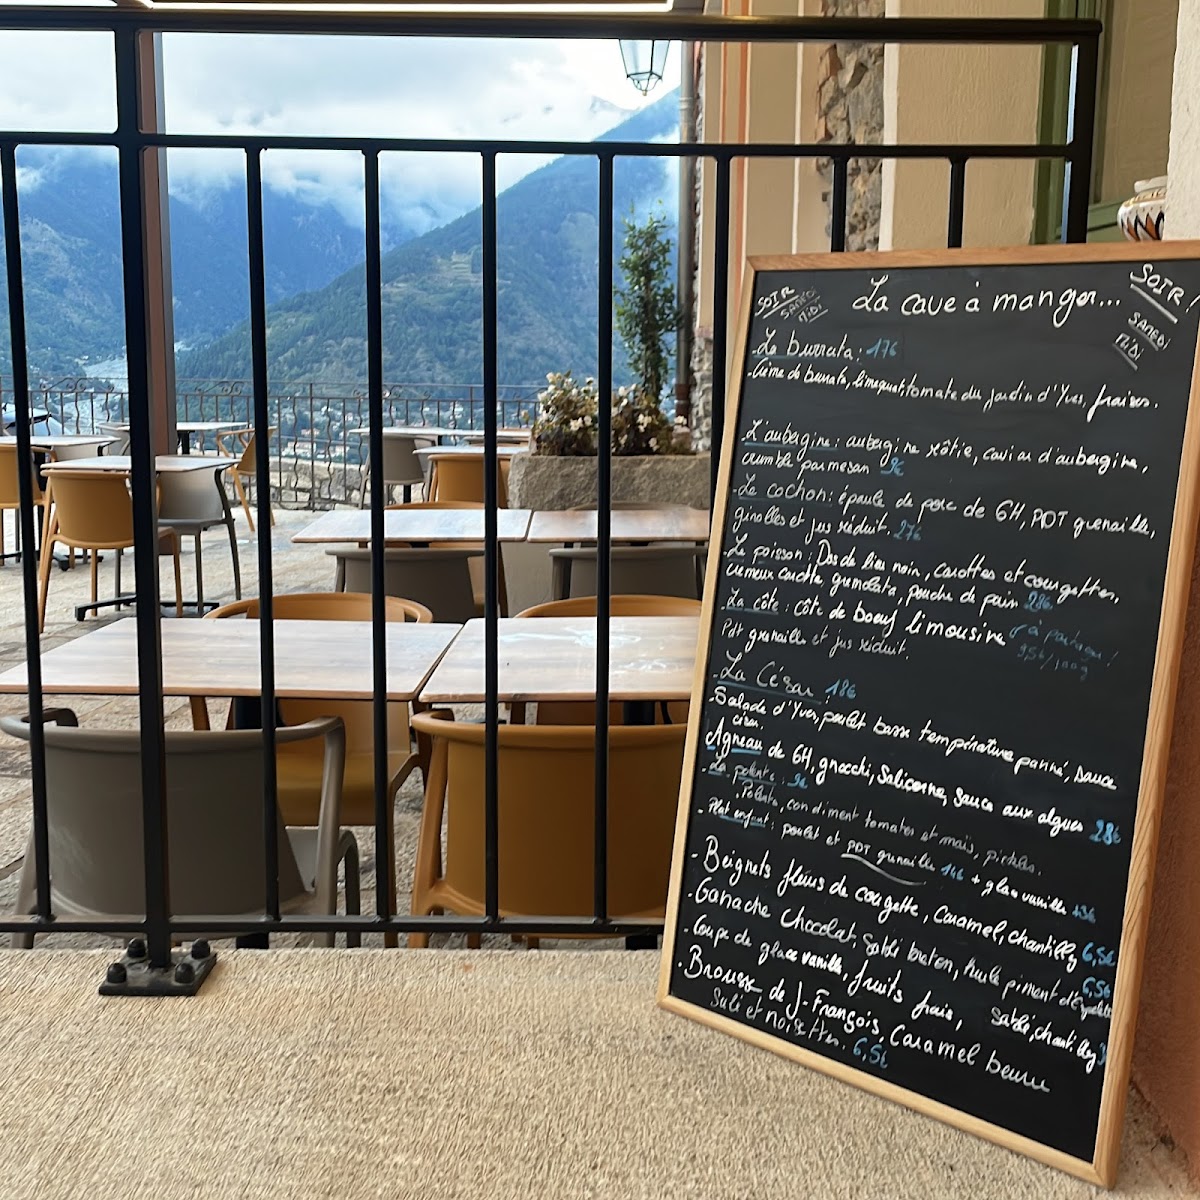 SOIR
SAMEDI
MIDI
La cave à manger...
SOIR !
SAMEDI
MIDI
- La burrata : 17€
- Crème de burrata, limequat, tomate du jardin d'Yves, fraises.
- L'aubergine : aubergine rôtie, caviar d'aubergine,
crumble parmesan 9€
- Le cochon : épaule de porc de 6H, PDT grenaille,
girolles et jus réduit. 27€
- Le poisson : Dos de lieu noir, carottes et courgettes,
crémeux carotte gremolata, poudre de pain 28€
- La côte : côte de boeuf limousine à partager !
Pdt grenaille et jus réduit. 9,5€/100g
- La César 18€
- Salade d'Yves, poulet basse température panné, sauce
césar.
- Agneau de 6H, gnocchi, Salicorne, sauce aux algues 28€
- La polenta : 9€
. Polenta, condiment tomates et maïs, pickles.
- Plat enfant : poulet et PDT grenaille 14€ + glace vanille +3€
- Beignets fleurs de courgette, Caramel, chantilly 6,5€
. Ganache chocolat, sablé breton, huile piment d'Espelette 6,5€
- Coupe de glace vanille, fruits frais, sablé, chantilly
. Brousse de J-François, Caramel beurre
Salé et noisettes. 6,5€